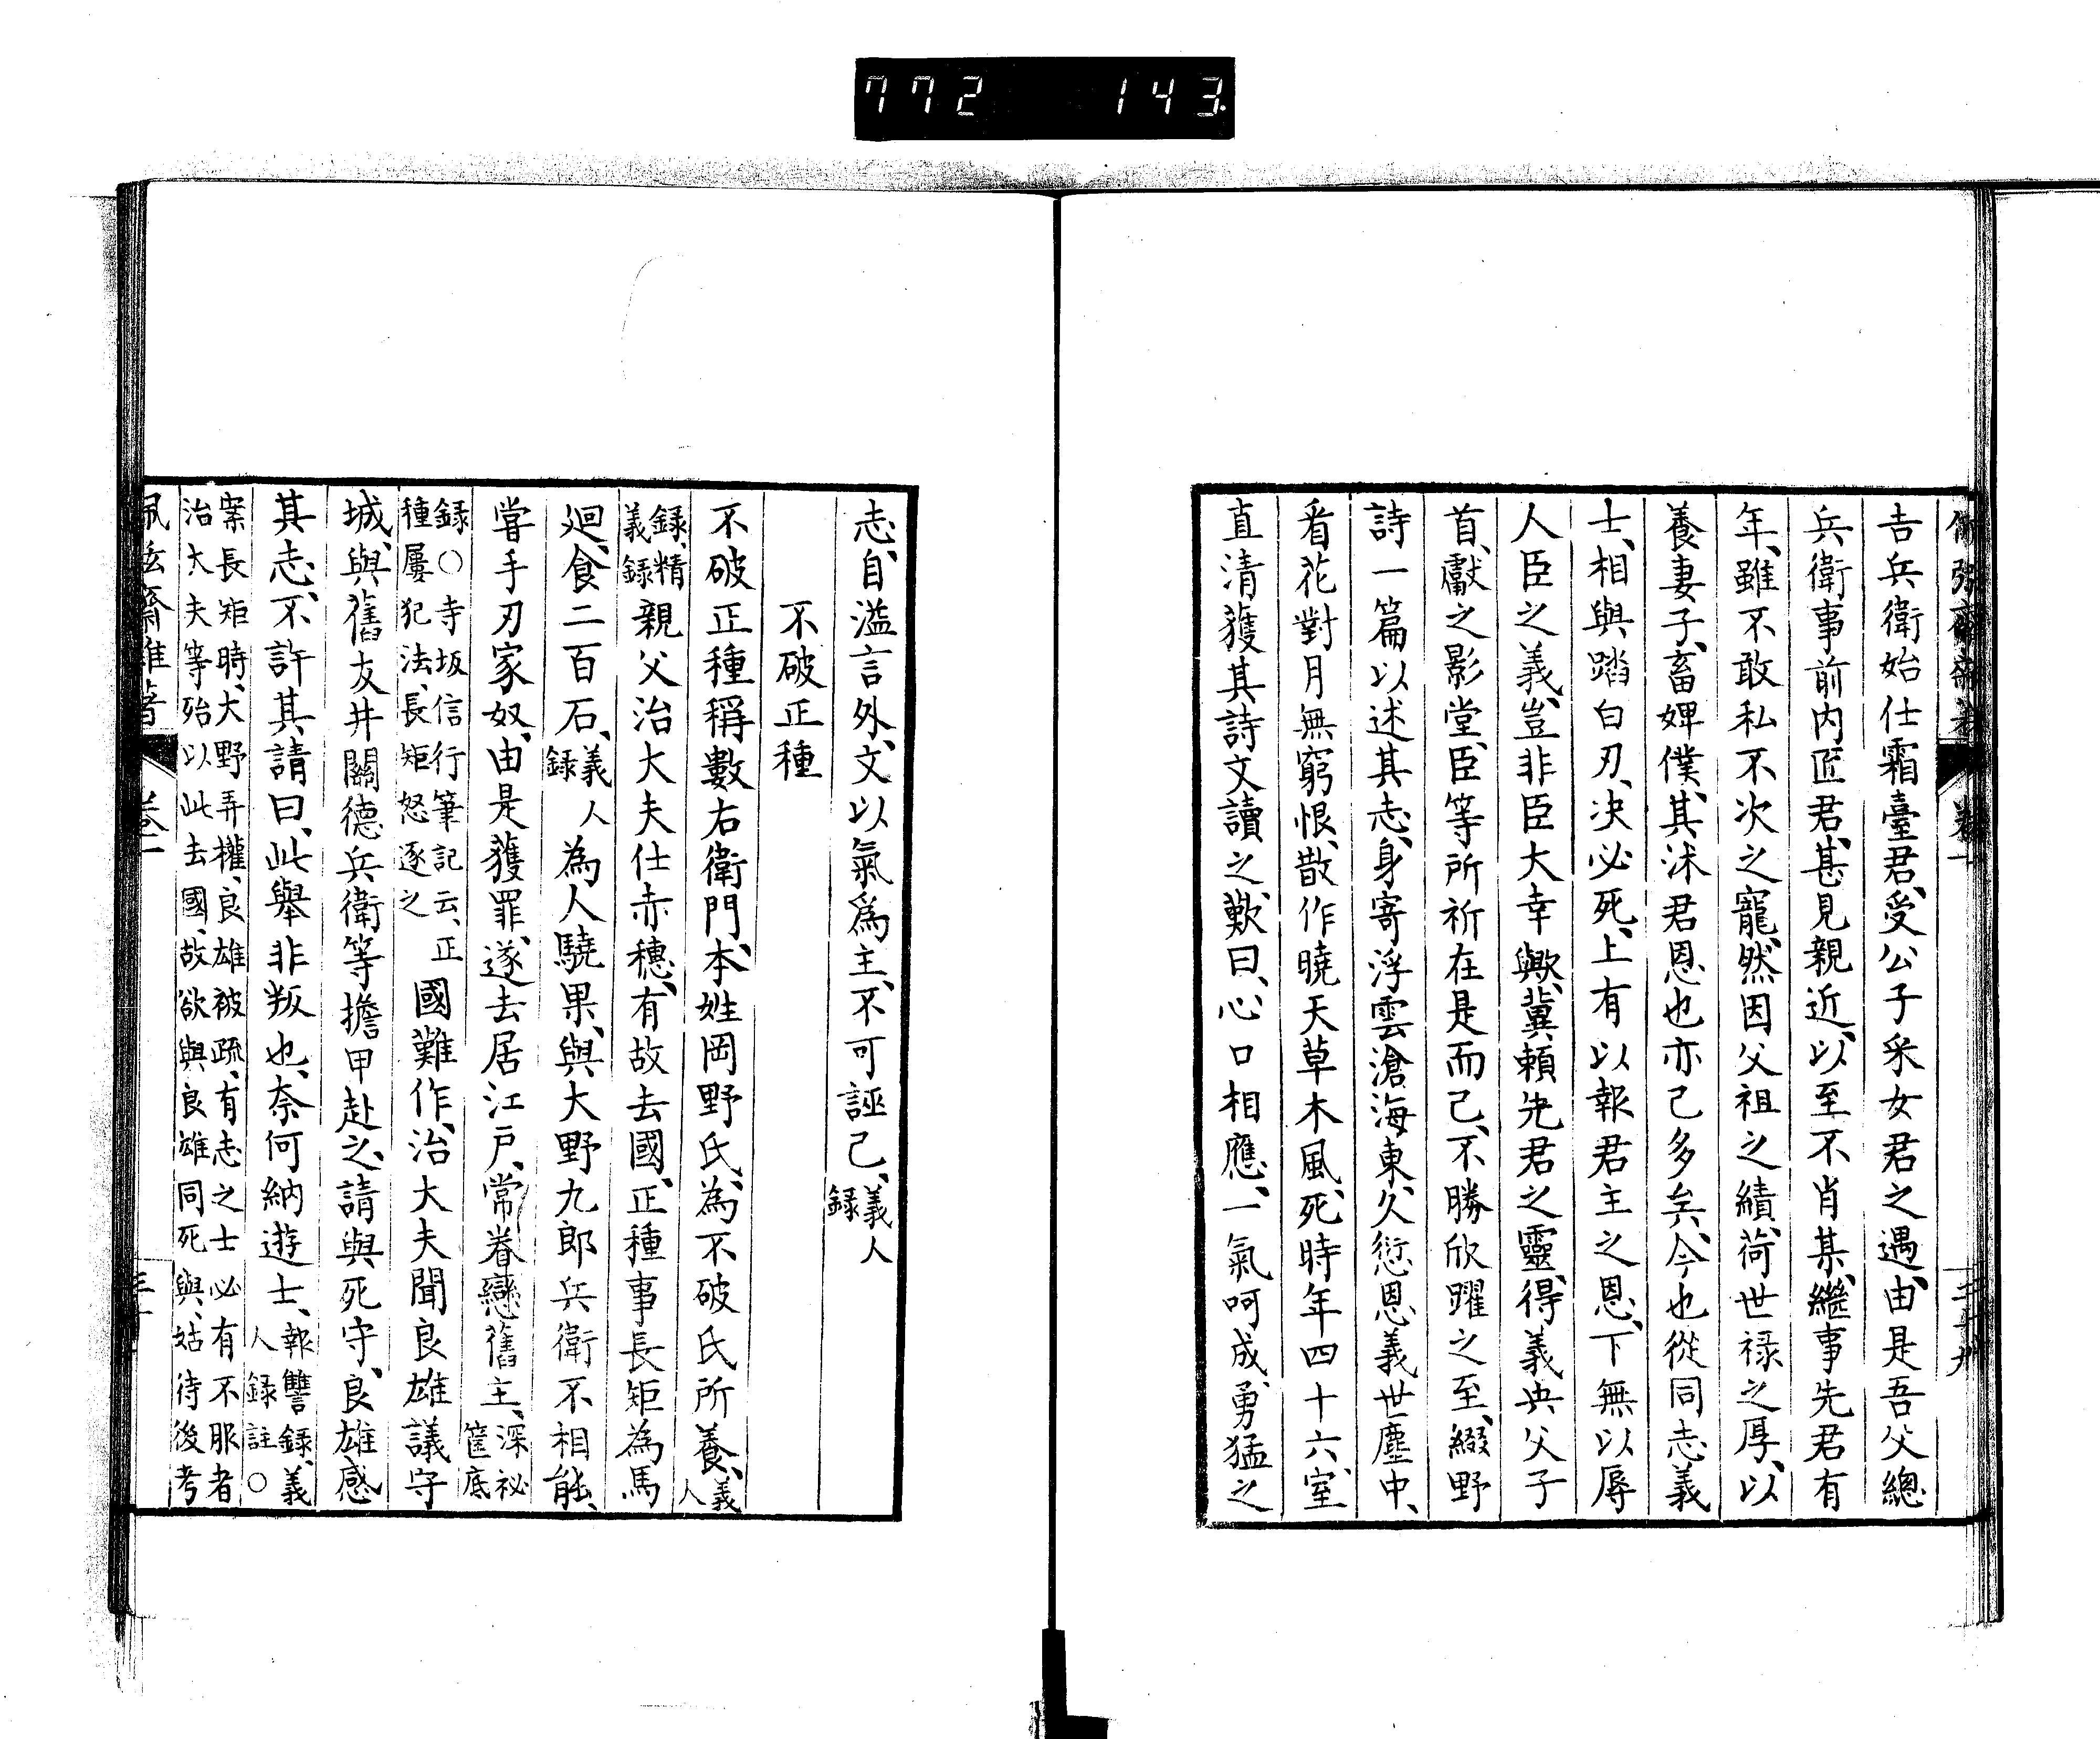 772 143
吉兵衛始仕霜臺君、受公子釆女君之遇、由是吾父總
兵衛事前内匠君、甚見親近、以至不肖某、繼事先君有
年、雖不敢私不次之寵、然因父祖之績、荷世禄之厚、以
養妻子、畜婢僕、其沐君恩也亦已多矣、今也從同志義
士、相與蹈白刃、決必死、上有以報君主之恩、下無以辱
人臣之義、豈非臣大幸歟、冀頼先君之靈、得義央父子
首、獻之影堂、臣等所祈在是而已、不勝欣躍之至、綴野
詩一篇以述其志、身寄浮雲滄海東、久愆恩義世塵中、
看花對月無窮恨、散作曉天草木風、死時年四十六、室
直清獲其詩文讀之、歎曰、心口相應、一氣呵成、勇猛之
志、自溢言外、文以氣爲主、不可誣已、義人
録
不破正種
不破正種稱數右衛門、本姓岡野氏、為不破氏所養、義
人
録、精
義録親父治大夫仕赤穗、有故去國、正種事長矩為馬
廻、食二百石、義人
録為人驍果、與大野九郎兵衛不相能、
嘗手刃家奴、由是獲罪、遂去居江戸、常眷戀舊主、深祕
筐底
録〇寺坂信行筆記云、正
種屢犯法、長矩怒逐之國難作、治大夫聞良雄議守
城、與舊友井關德兵衛等擔甲赴之、請與死守、良雄感
其志、不許其請曰、此舉非叛也、奈何納遊士、報讐録、義
人録註〇
案長矩時、大野弄權、良雄被疏、有志之士必有不服者
治大夫等殆以此去國、故欲與良雄同死與、姑待後考
卷一